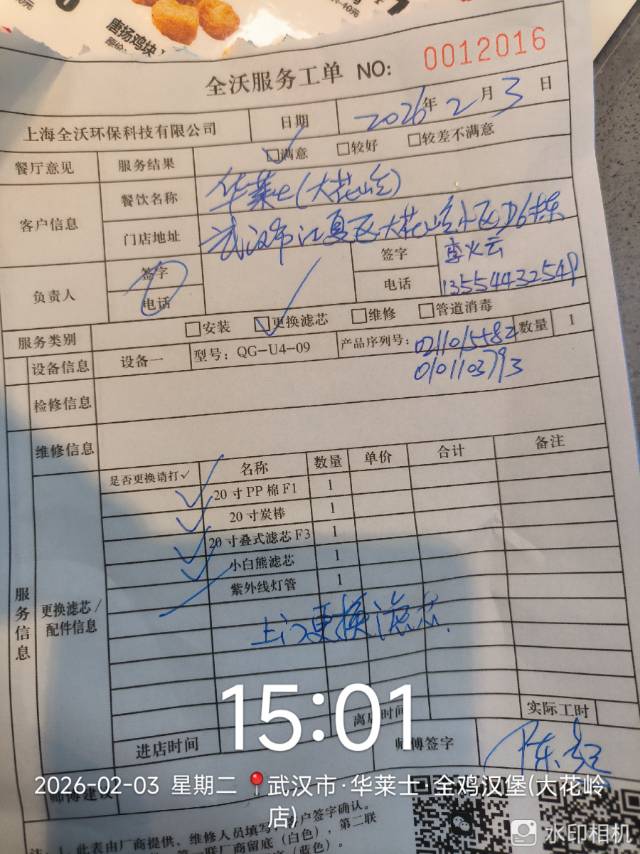 唐扬鸡块
全沃服务工单 NO: 0012016
上海全沃环保科技有限公司 日期 2026年2月3日
餐厅意见 服务结果 ☑满意 □较好 □较差不满意
客户信息 餐饮名称 华莱士(大花岭)
门店地址 武汉市江夏区大花岭小区D6栋
负责人 签字 签字
电话 电话 13554432549
服务类别 □安装 ☑更换滤芯 □维修 □管道消毒
设备信息 设备一 型号: QG-U4-09 产品序列号: 0211015582 数量 1
0101103793
检修信息
维修信息
服务信息
更换滤芯/配件信息
是否更换请打✓ 名称 数量 单价 合计 备注
✓ 20寸PP棉F1 1
✓ 20寸炭棒 1
✓ 20寸叠式滤芯F3 1
✓ 小白熊滤芯 1
紫外线灯管 1
上门更换滤芯.
15:01
进店时间 离店时间 实际工时
师傅签字
2026-02-03 星期二 武汉市·华莱士·全鸡汉堡(大花岭店)
师傅建议
注: 1、此表由厂商提供、维修人员填写
水印相机